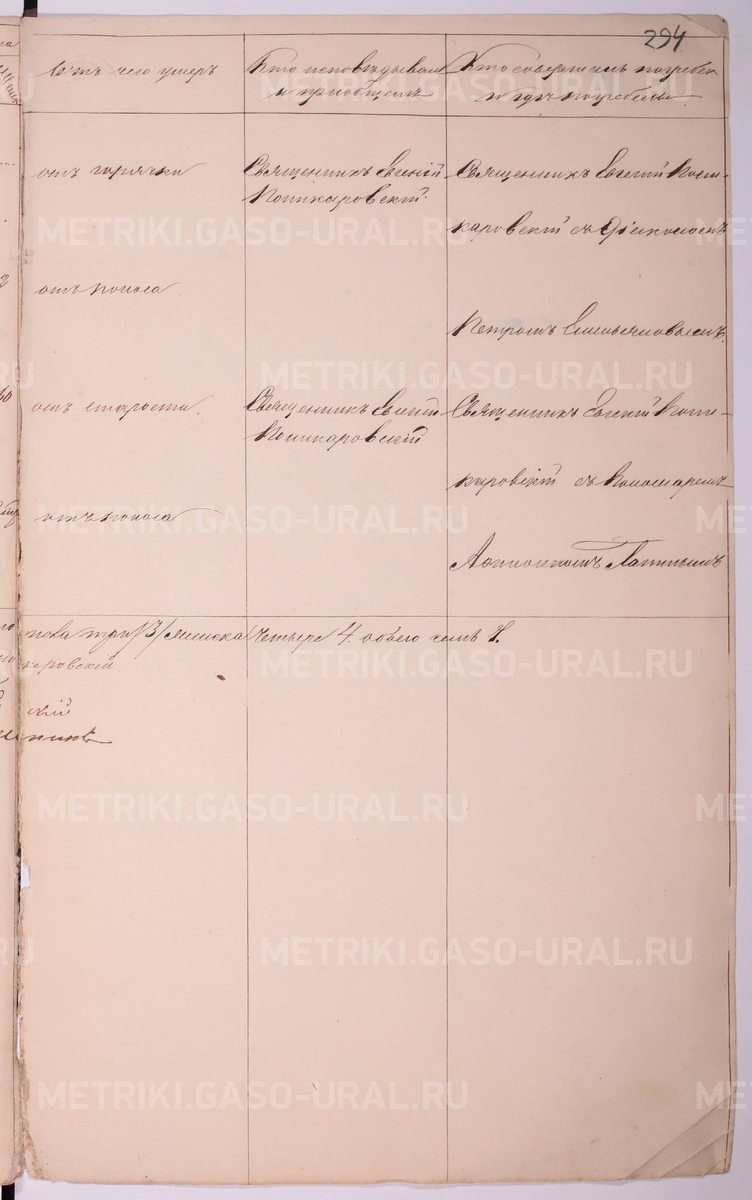 294
Отъ чего умеръ
Кто исповѣдывалъ
и пріобщалъ
Кто совершалъ погребен
и гдѣ погребены
отъ горячки
Священникъ Евгеній
Поликаровскій.
Священникъ Евгеній Поли-
каровскій съ Діакономъ
2
отъ поноса
Петромъ Емельяновымъ.
отъ старости.
Священникъ Евгеній
Поликаровскій
Священникъ Евгеній Поли-
каровскій съ Пономаремъ
отъ поноса
Аѳиногеномъ
пола три /3/ женска четыре 4. обоего семь 7.
каровскій
METRIKI.GASO-URAL.RU